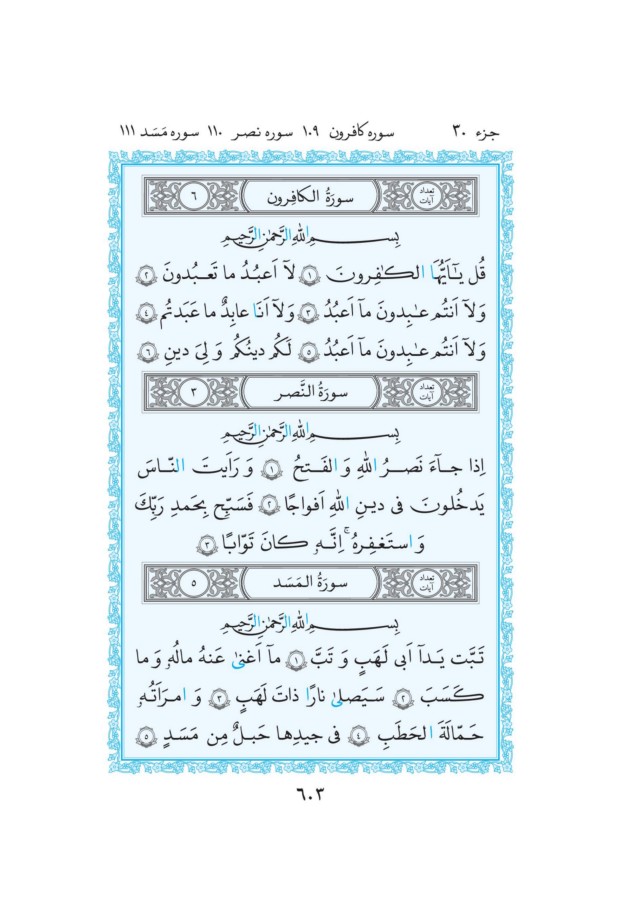 جزء ۳۰ سوره کافرون ۱۰۹ سوره نصر ۱۱۰ سوره مَسَد ۱۱۱
تعداد آیات سورَةُ الکافِرون ۶
بِسمِ اللهِ الرَّحمٰنِ الرَّحیمِ
قُل یٰٓاَیُّهَا الکٰفِرونَ ۱ لآ اَعبُدُ ما تَعبُدونَ ۲
وَلآ اَنتُم عٰبِدونَ مآ اَعبُدُ ۳ وَلآ اَنَا عابِدٌ ما عَبَدتُم ۴
وَلآ اَنتُم عٰبِدونَ مآ اَعبُدُ ۵ لَکُم دینُکُم وَ لِیَ دینِ ۶
تعداد آیات سورَةُ النَّصر ۳
بِسمِ اللهِ الرَّحمٰنِ الرَّحیمِ
اِذا جآءَ نَصرُ اللهِ وَ الفَتحُ ۱ وَ رَاَیتَ النّاسَ
یَدخُلونَ فی دینِ اللهِ اَفواجًا ۲ فَسَبِّح بِحَمدِ رَبِّکَ
وَ استَغفِرهُ ۚ اِنَّهو کانَ تَوّابًا ۳
تعداد آیات سورَةُ المَسَد ۵
بِسمِ اللهِ الرَّحمٰنِ الرَّحیمِ
تَبَّت یَدآ اَبی لَهَبٍ وَ تَبَّ ۱ مآ اَغنیٰ عَنهُ مالُهو وَ ما
کَسَبَ ۲ سَیَصلیٰ نارًا ذاتَ لَهَبٍ ۳ وَ امرَاَتُهو
حَمّالَةَ الحَطَبِ ۴ فی جیدِها حَبلٌ مِن مَسَدٍ ۵
۶۰۳